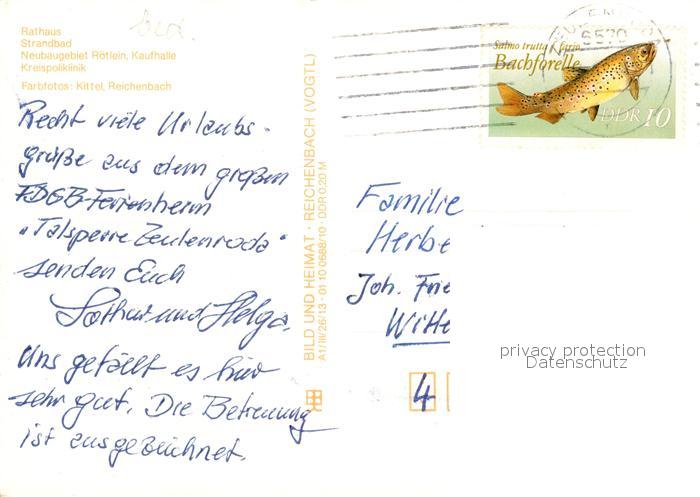 Rathaus
Strandbad
Neubaugebiet Rötlein, Kaufhalle
Kreispoliklinik
Farbfotos: Kittel, Reichenbach
Recht viele Urlaubs-
grüße aus dem großen
FDGB-Ferienheim
„Talsperre Zeulenroda“
senden Euch
Lothar und Helga.
Uns gefällt es hier
sehr gut. Die Betreuung
ist ausgezeichnet.
BILD UND HEIMAT · REICHENBACH (VOGTL)
A1/III/26/13 · 01 10 0688/10 · DDR 0,20 M
6570
Salmo trutta fario
Bachforelle
DDR 10
Familie
Herbe
Joh. Frie
Witte
4
privacy protection
Datenschutz